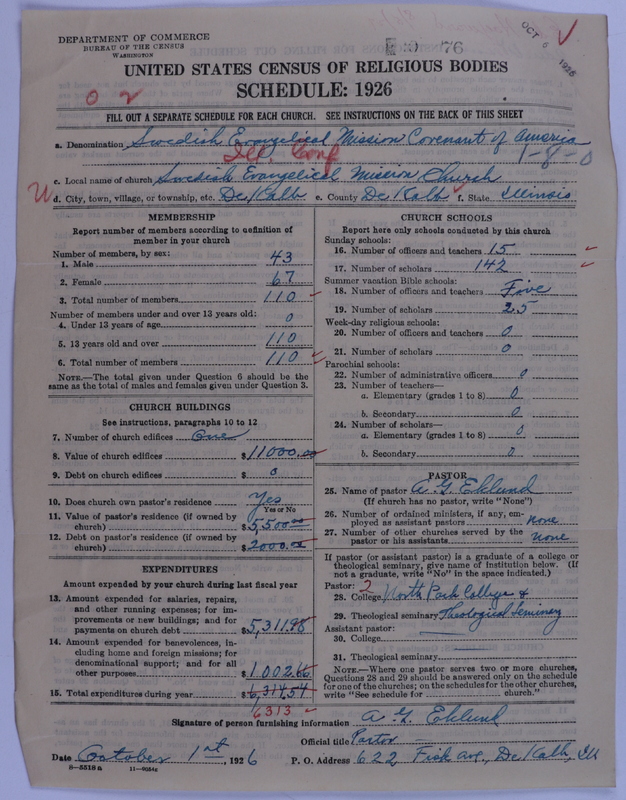 DEPARTMENT OF COMMERCE
BUREAU OF THE CENSUS
WASHINGTON
76
OCT 6 1926
UNITED STATES CENSUS OF RELIGIOUS BODIES
SCHEDULE: 1926
0 2
FILL OUT A SEPARATE SCHEDULE FOR EACH CHURCH. SEE INSTRUCTIONS ON THE BACK OF THIS SHEET
a. Denomination Swedish Evangelical Mission Covenant of America
Ill. Conf
1-8-0
c. Local name of church Swedish Evangelical Mission Church
d. City, town, village, or township, etc. De Kalb e. County De Kalb f. State Illinois
MEMBERSHIP
Report number of members according to definition of
member in your church
Number of members, by sex:
1. Male 43
2. Female 67
3. Total number of members 110
Number of members under and over 13 years old:
4. Under 13 years of age 0
5. 13 years old and over 110
6. Total number of members 110
NOTE.—The total given under Question 6 should be the
same as the total of males and females given under Question 3.
CHURCH BUILDINGS
See instructions, paragraphs 10 to 12
7. Number of church edifices One
8. Value of church edifices $11000.00
9. Debt on church edifices $ 0
10. Does church own pastor's residence Yes
Yes or No
11. Value of pastor's residence (if owned by
church) $5,500.00
12. Debt on pastor's residence (if owned by
church) $2000.00
EXPENDITURES
Amount expended by your church during last fiscal year
13. Amount expended for salaries, repairs,
and other running expenses; for im-
provements or new buildings; and for
payments on church debt $5,311.98
14. Amount expended for benevolences, in-
cluding home and foreign missions; for
denominational support; and for all
other purposes $1,002.66
15. Total expenditures during year $6,314.54
6313
CHURCH SCHOOLS
Report here only schools conducted by this church
Sunday schools:
16. Number of officers and teachers 15
17. Number of scholars 142
Summer vacation Bible schools:
18. Number of officers and teachers Five
19. Number of scholars 25
Week-day religious schools:
20. Number of officers and teachers 0
21. Number of scholars 0
Parochial schools:
22. Number of administrative officers 0
23. Number of teachers—
a. Elementary (grades 1 to 8) 0
b. Secondary 0
24. Number of scholars—
a. Elementary (grades 1 to 8) 0
b. Secondary 0
PASTOR
25. Name of pastor A. G. Eklund
(If church has no pastor, write "None")
26. Number of ordained ministers, if any, em-
ployed as assistant pastors none
27. Number of other churches served by the
pastor or his assistants none
If pastor (or assistant pastor) is a graduate of a college or
theological seminary, give name of institution below. (If
not a graduate, write "No" in the space indicated.)
Pastor: 2
28. College North Park College &
29. Theological seminary Theological Seminary
Assistant pastor:
30. College
31. Theological seminary
NOTE.—Where one pastor serves two or more churches,
Questions 28 and 29 should be answered only on the schedule
for one of the churches; on the schedules for the other churches,
write "See schedule for church."
Signature of person furnishing information A. G. Eklund
Official title Pastor
Date October 1st, 1926 P. O. Address 622 Fisk Ave., De Kalb, Ill
8—5518a 11—9054c